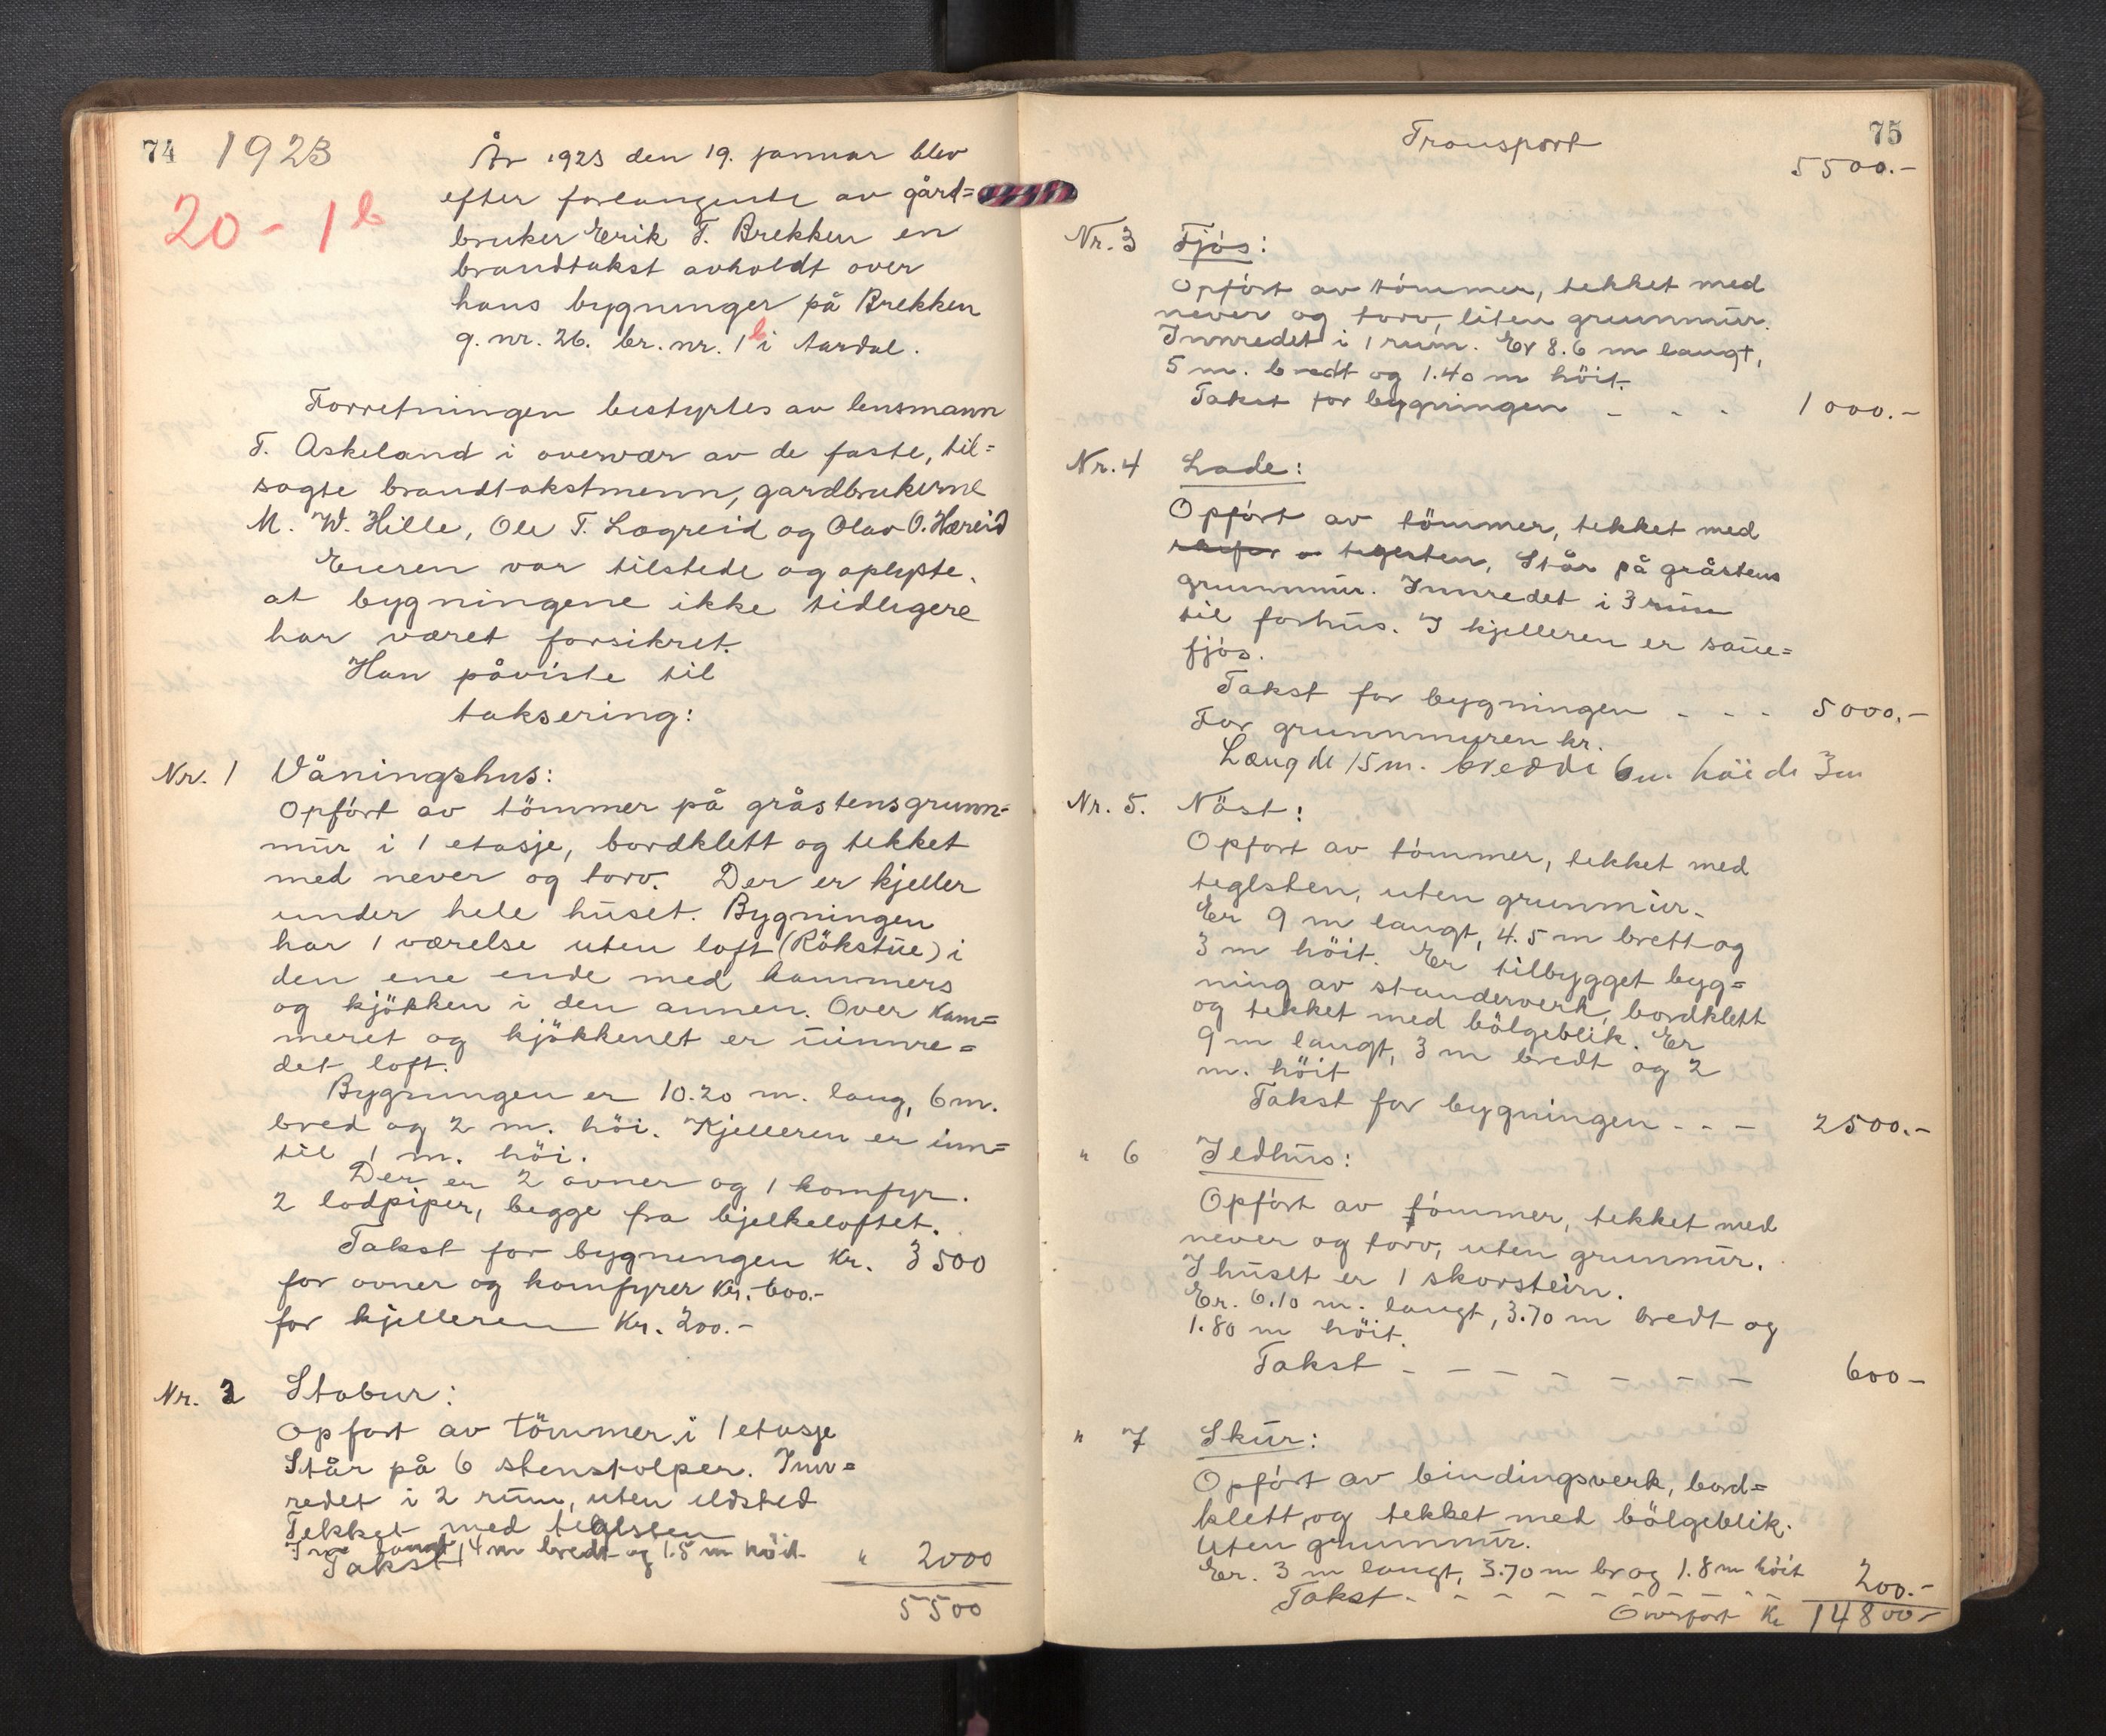 74 1923
20 - 1 b
År 1923 den 19. januar blev
efter forlangende av gård=
bruker Erik T. Brekken en
brandtakst avholdt over
hans bygninger på Brekken
g. nr. 26. br. nr. 1 b i Aardal.
Forretningen bestyrtes av lensmann
T. Askeland i overvær av de faste, til=
sagte brandtakstmenn, gardbrukerne
M. W. Hille, Ole T. Lægreid og Olav O. Hæreid
Eieren var tilstede og oplyste,
at bygningene ikke tidligere
har været forsikret.
Han påviste til
taksering:
Nr. 1 Våningshus:
Opført av tömmer på gråstensgrunn=
mür i 1 etasje, bordklett og tekket
med never og torv. Der er kjeller
under hele hüset. Bygningen
har 1 værelse uten loft (Rökstüe) i
den ene ende med kammers
og kjökken i den annen. Over kam=
meret og kjökkenet er üinnre=
det loft.
Bygningen er 10.20 m. lang, 6 m.
bred og 2 m. höi. Kjelleren er inn=
til 1 m. höi.
Der er 2 ovner og 1 komfyr.
2 lodpiper, begge fra bjelkeloftet.
Takst for bygningen Kr. 3500
for ovner og komfyrer Kr. 600.-
for kjelleren Kr. 200.-
Nr. 2 Stabur:
Opfört av tömmer i 1 etasje
Står på 6 stenstolper. Inn=
redet i 2 rüm, uten ildsted
Tekket med teglsten
langt 4 m bredt og 1.5 m höit
Takst " 2000
5500
Transport 75
5500.-
Nr. 3 Fjös:
Opfört av tömmer, tekket med
never og torv, liten grunnmür.
Innredet i 1 rum. Er 8.6 m langt,
5 m. bredt og 1.40 m höit.
Takst for bygningen - - - 1000.-
Nr. 4 Lade:
Opfört av tömmer, tekket med
teglsten, Står på gråstens
grunnmür. Innredet i 3 rüm
til forhüs. I kjelleren er saue=
fjös.
Takst for bygningen - - - 5000.-
For grunnmuren kr.
Længde 15 m. bredde 6 m. höide 3 m
Nr. 5. Nöst:
Opfört av tömmer, tekket med
teglsten, uten grunnmür.
Er 9 m langt, 4.5 m brett og
3 m höit. Er tilbygget byg=
ning av standerverk, bordklett
og tekket med bölgeblik. Er
9 m langt, 3 m bredt og 2
m. höit
Takst for bygningen - - - 2500.-
" 6 Ildhüs:
Opfört av tömmer, tekket med
never og torv, uten grunnmür.
I hüset er 1 skorstein.
Er. 6.10 m. langt, 3.70 m bredt og
1.80 m höit.
Takst - - - - - - - 600-
" 7 Skür:
Opfört av bindingsverk, bord=
klett og tekket med bölgeblik.
Uten grunnmür.
Er. 3 m langt, 3.70 m br og 1.8 m höit
Takst - - - - - - - - 200.-
Overfört Kr 14800-